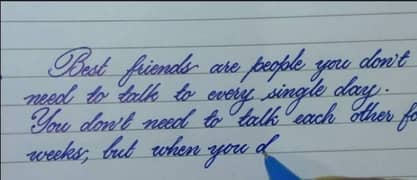 Best friends are people you don't
need to talk to every single day.
You don't need to talk each other fo
weeks, but when you d